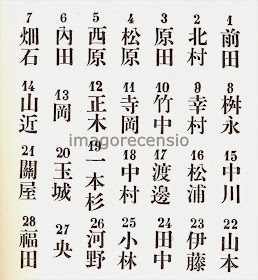 1 前田
2 北村
3 原田
4 松原
5 西原
6 內田
7 畑石
8 桝永
9 幸村
10 竹中
11 寺岡
12 正木
13 岡
14 山近
15 中川
16 松浦
17 渡邊
18 中村
19 一本杉
20 玉城
21 關屋
22 山本
23 伊藤
24 田中
25 小林
26 河野
27 央
28 福田
imagorecensio